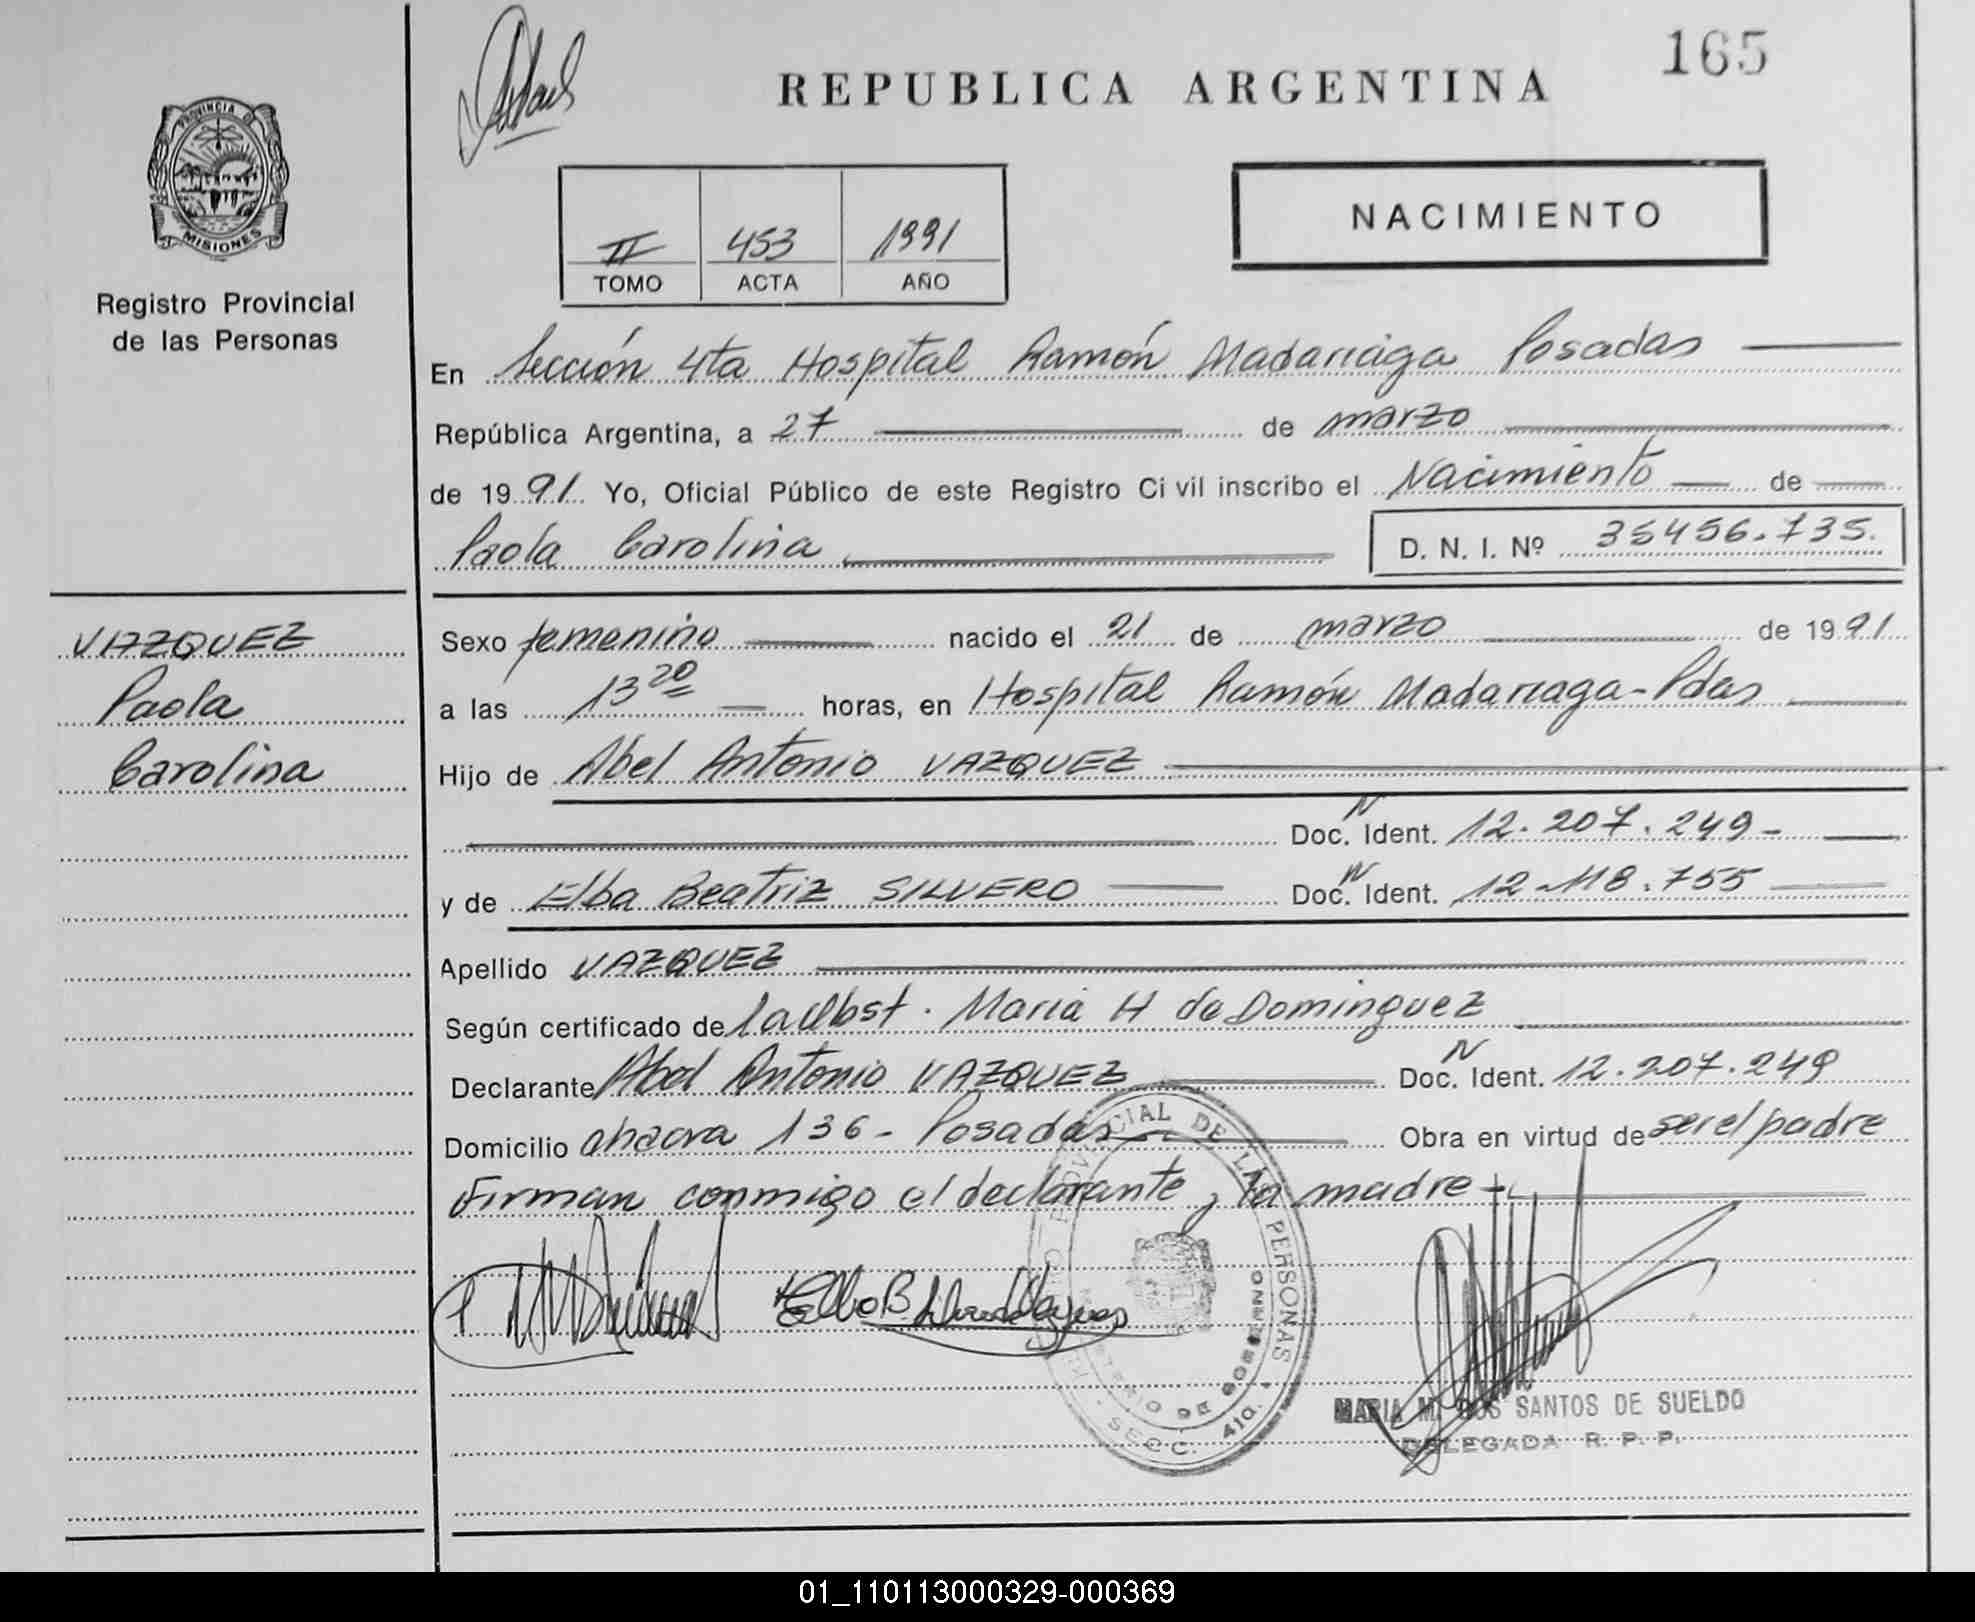 165
REPUBLICA ARGENTINA
PROVINCIA DE
MISIONES
Registro Provincial
de las Personas
NACIMIENTO
II 453 1991
TOMO ACTA AÑO
En Sección 4ta Hospital Ramón Madariaga Posadas
República Argentina, a 27 de marzo
de 1991. Yo, Oficial Público de este Registro Civil inscribo el Nacimiento de
Paola Carolina D. N. I. Nº 35456.735.
VAZQUEZ
Paola
Carolina
Sexo femenino nacido el 21 de marzo de 1991
a las 13 20 horas, en Hospital Ramón Madariaga-Pdas
Hijo de Abel Antonio VAZQUEZ
N
Doc. Ident. 12.207.249-
y de Elba Beatriz SILVERO Doc. N Ident. 12.118.755
Apellido VAZQUEZ
Según certificado de la Obst. Maria H de Dominguez
Declarante Abel Antonio VAZQUEZ Doc. N Ident. 12.207.249
Domicilio chacra 136- Posadas Obra en virtud de ser el padre
Firman conmigo el declarante y la madre
PROVINCIAL DE LAS PERSONAS
MINISTERIO DE GOBIERNO
SECC. 4ta.
MARIA M. DOS SANTOS DE SUELDO
DELEGADA R. P. P.
01_110113000329-000369